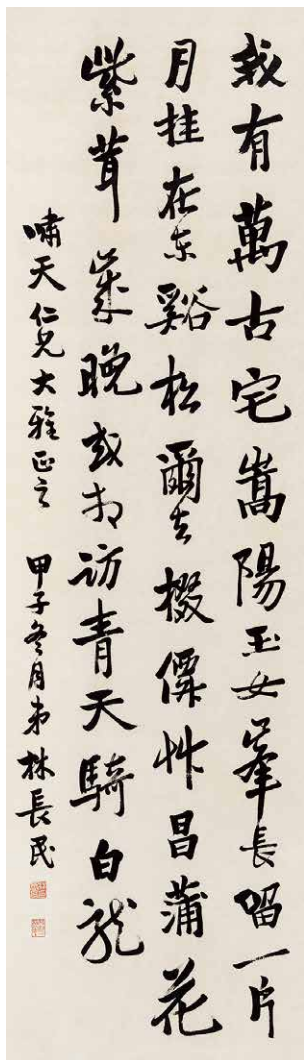 我有萬古宅嵩陽玉女峯長留一片
月挂在东谿松爾去掇僊艸昌蒲花
紫茸歲晚或相訪青天騎白龍
嘯天仁兄大雅正之 甲子冬月弟林長民